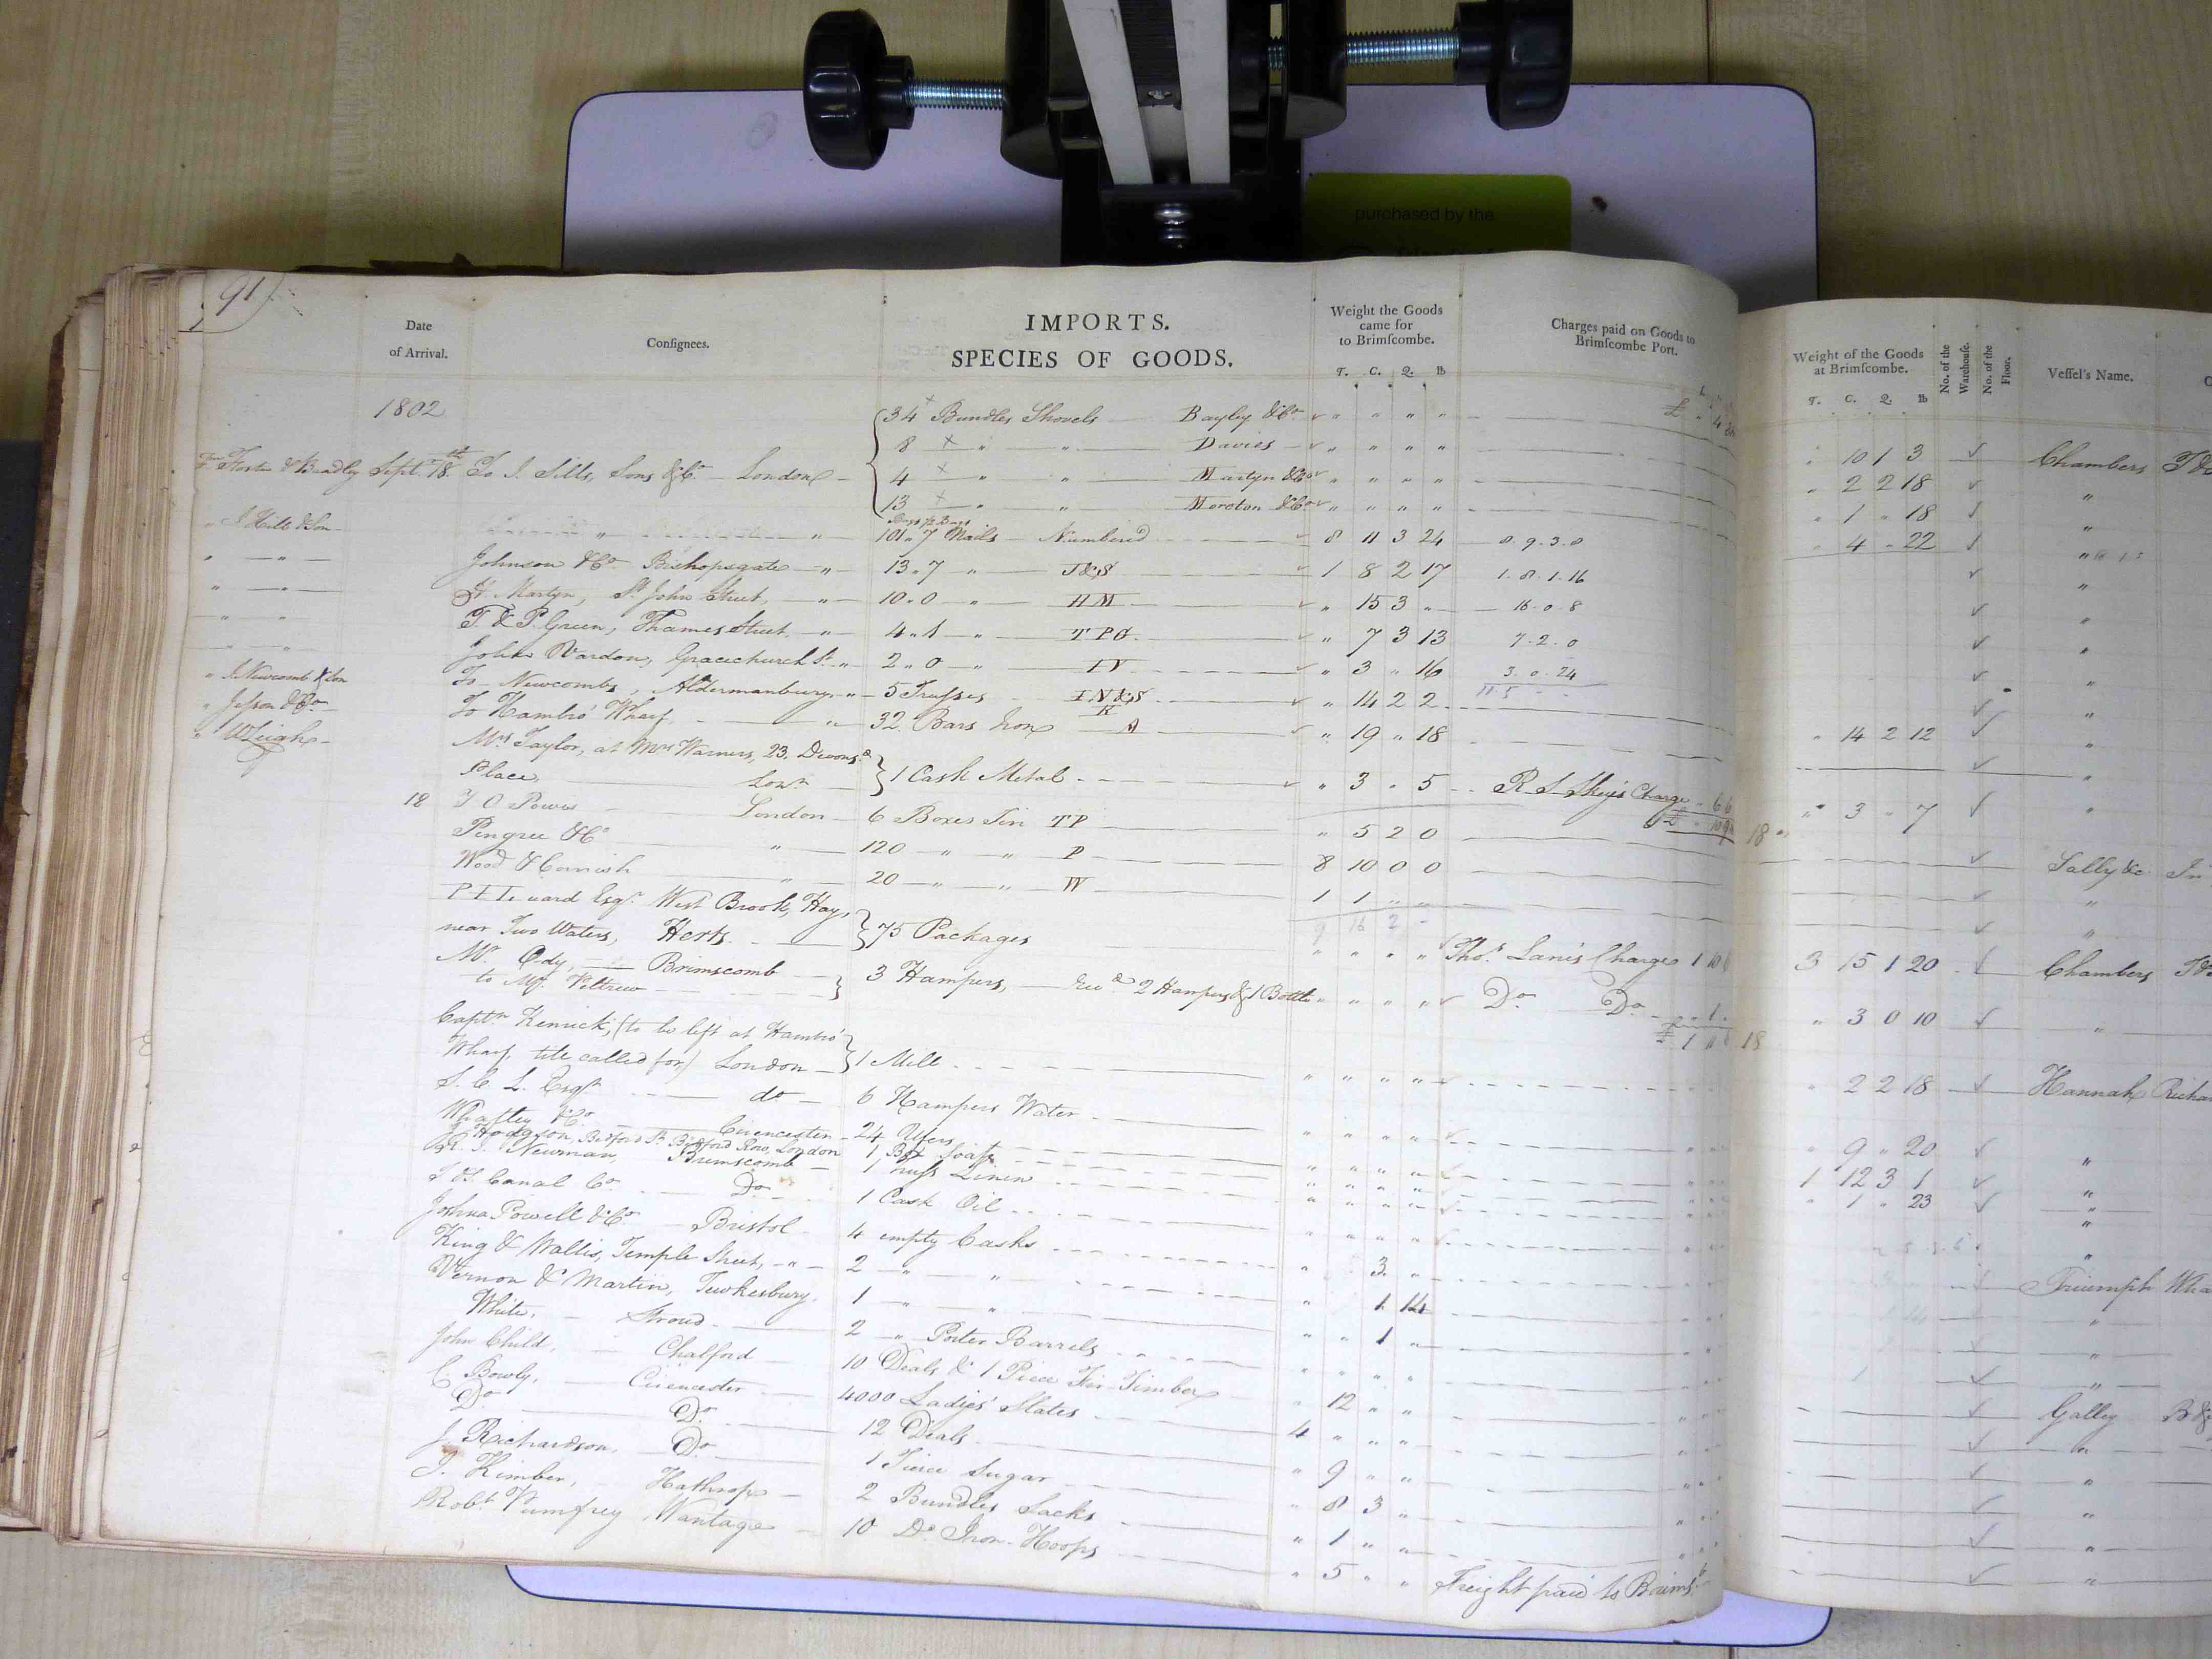 purchased by the
91
Date of Arrival.
Consignees.
IMPORTS.
SPECIES OF GOODS.
Weight the Goods came for to Brimscombe.
T. C. Q. lb
Charges paid on Goods to Brimscombe Port.
Weight of the Goods at Brimscombe.
T. C. Q. lb
No. of the Warehouse.
No. of the Floor.
Vessel's Name.
1802
34 Bundles Shovels Bayley & Co
10 1 3 Chambers
8 " " Davies
2 2 18 "
Sept 18th To J. Sills, Sons & Co London
4 " " Martyn & Co
1 " 18 "
13 " " Moreton & Co
4 " 22 "
" J. Hill & Son " " 101 " 7 Nails Numbered 8 11 3 24 8. 9. 3. 0
" " Johnson & Co Bishopsgate " 13 " 7 " J&S 1 8 2 17 1. 8. 1. 16
" " H. Martyn, St John Street, " 10 " 0 " HM " 15 3 " 16. 0. 8
" " T. & P. Green, Thames Street " 4 " 1 " TPG " 7 3 13 7. 2. 0
" " John Vardon, Gracechurch St " 2 " 0 " IV " 3 " 16 3. 0. 24
" J. Newcomb & Son To Newcombs, Aldermanbury " 5 Trusses IN&S " 14 2 2
" 14 2 12 "
" Jesson & Co To Hambro' Wharf " 32 Bars Iron " 19 " 18
" W Leigh Mrs Taylor, at Mrs Warners, 23, Devons.
Place Lonn 1 Cask Metal " 3 " 5 R S Skey's Charge " 6 6
" 3 " 7 "
18 T O Powis London 6 Boxes Tin TP " 5 2 0
Sally &c
Pingree & Co " 120 " " P 8 10 0 0
Wood & Cornish " 20 " " W 1 1 " "
9 16 2
Esqr. West Brook, Hay,
near Two Waters, Herts. 75 Packages " " " " Thos. Lane's Charge 1 10
3 15 1 20 Chambers
Mr. Ody, Brimscomb
to Mr. 3 Hampers, recd 2 Hampers & 1 Bottle " " " " Do Do 1
" 3 0 10 "
Captn Kenrick, (to be left at Hambro'
Wharf, till called for) London 1 Mill " " " "
" 2 2 18 Hannah
S. C. L. Esqr do 6 Hampers Water " " " "
" 9 " 20 "
& Co Cirencester 24
1 12 3 1 "
J. Hodgson, Bedford St. Bedford Row, London 1 Box Soap " " " "
" 1 " 23 "
R. J. Newman, Brimscomb 1 Truss Linen " " " "
T & S Canal Co Do 1 Cask Oil " " " "
Joshua Powell & Co Bristol 4 empty Casks " 3 "
Triumph
King & Wallis, Temple Street, " 2 " " 1 14
Vernon & Martin, Tewkesbury 1 " " " " 1 "
White, Stroud 2 " Porter Barrels " " " "
John Child, Chalford 10 Deals & 1 Piece Fir Timber " 12 " "
Galley
C Bowly, Cirencester 4000 Ladies' Slates 4 " " "
Do Do 12 Deals " 9 " "
J. Richardson, Do 1 Tierce Sugar " 8 3 "
T. Kimber, Hathrop 2 Bundles Sacks " 1 " "
Robt Pumfrey Wantage 10 Do Iron Hoops " 5 " " Freight paid to Brims